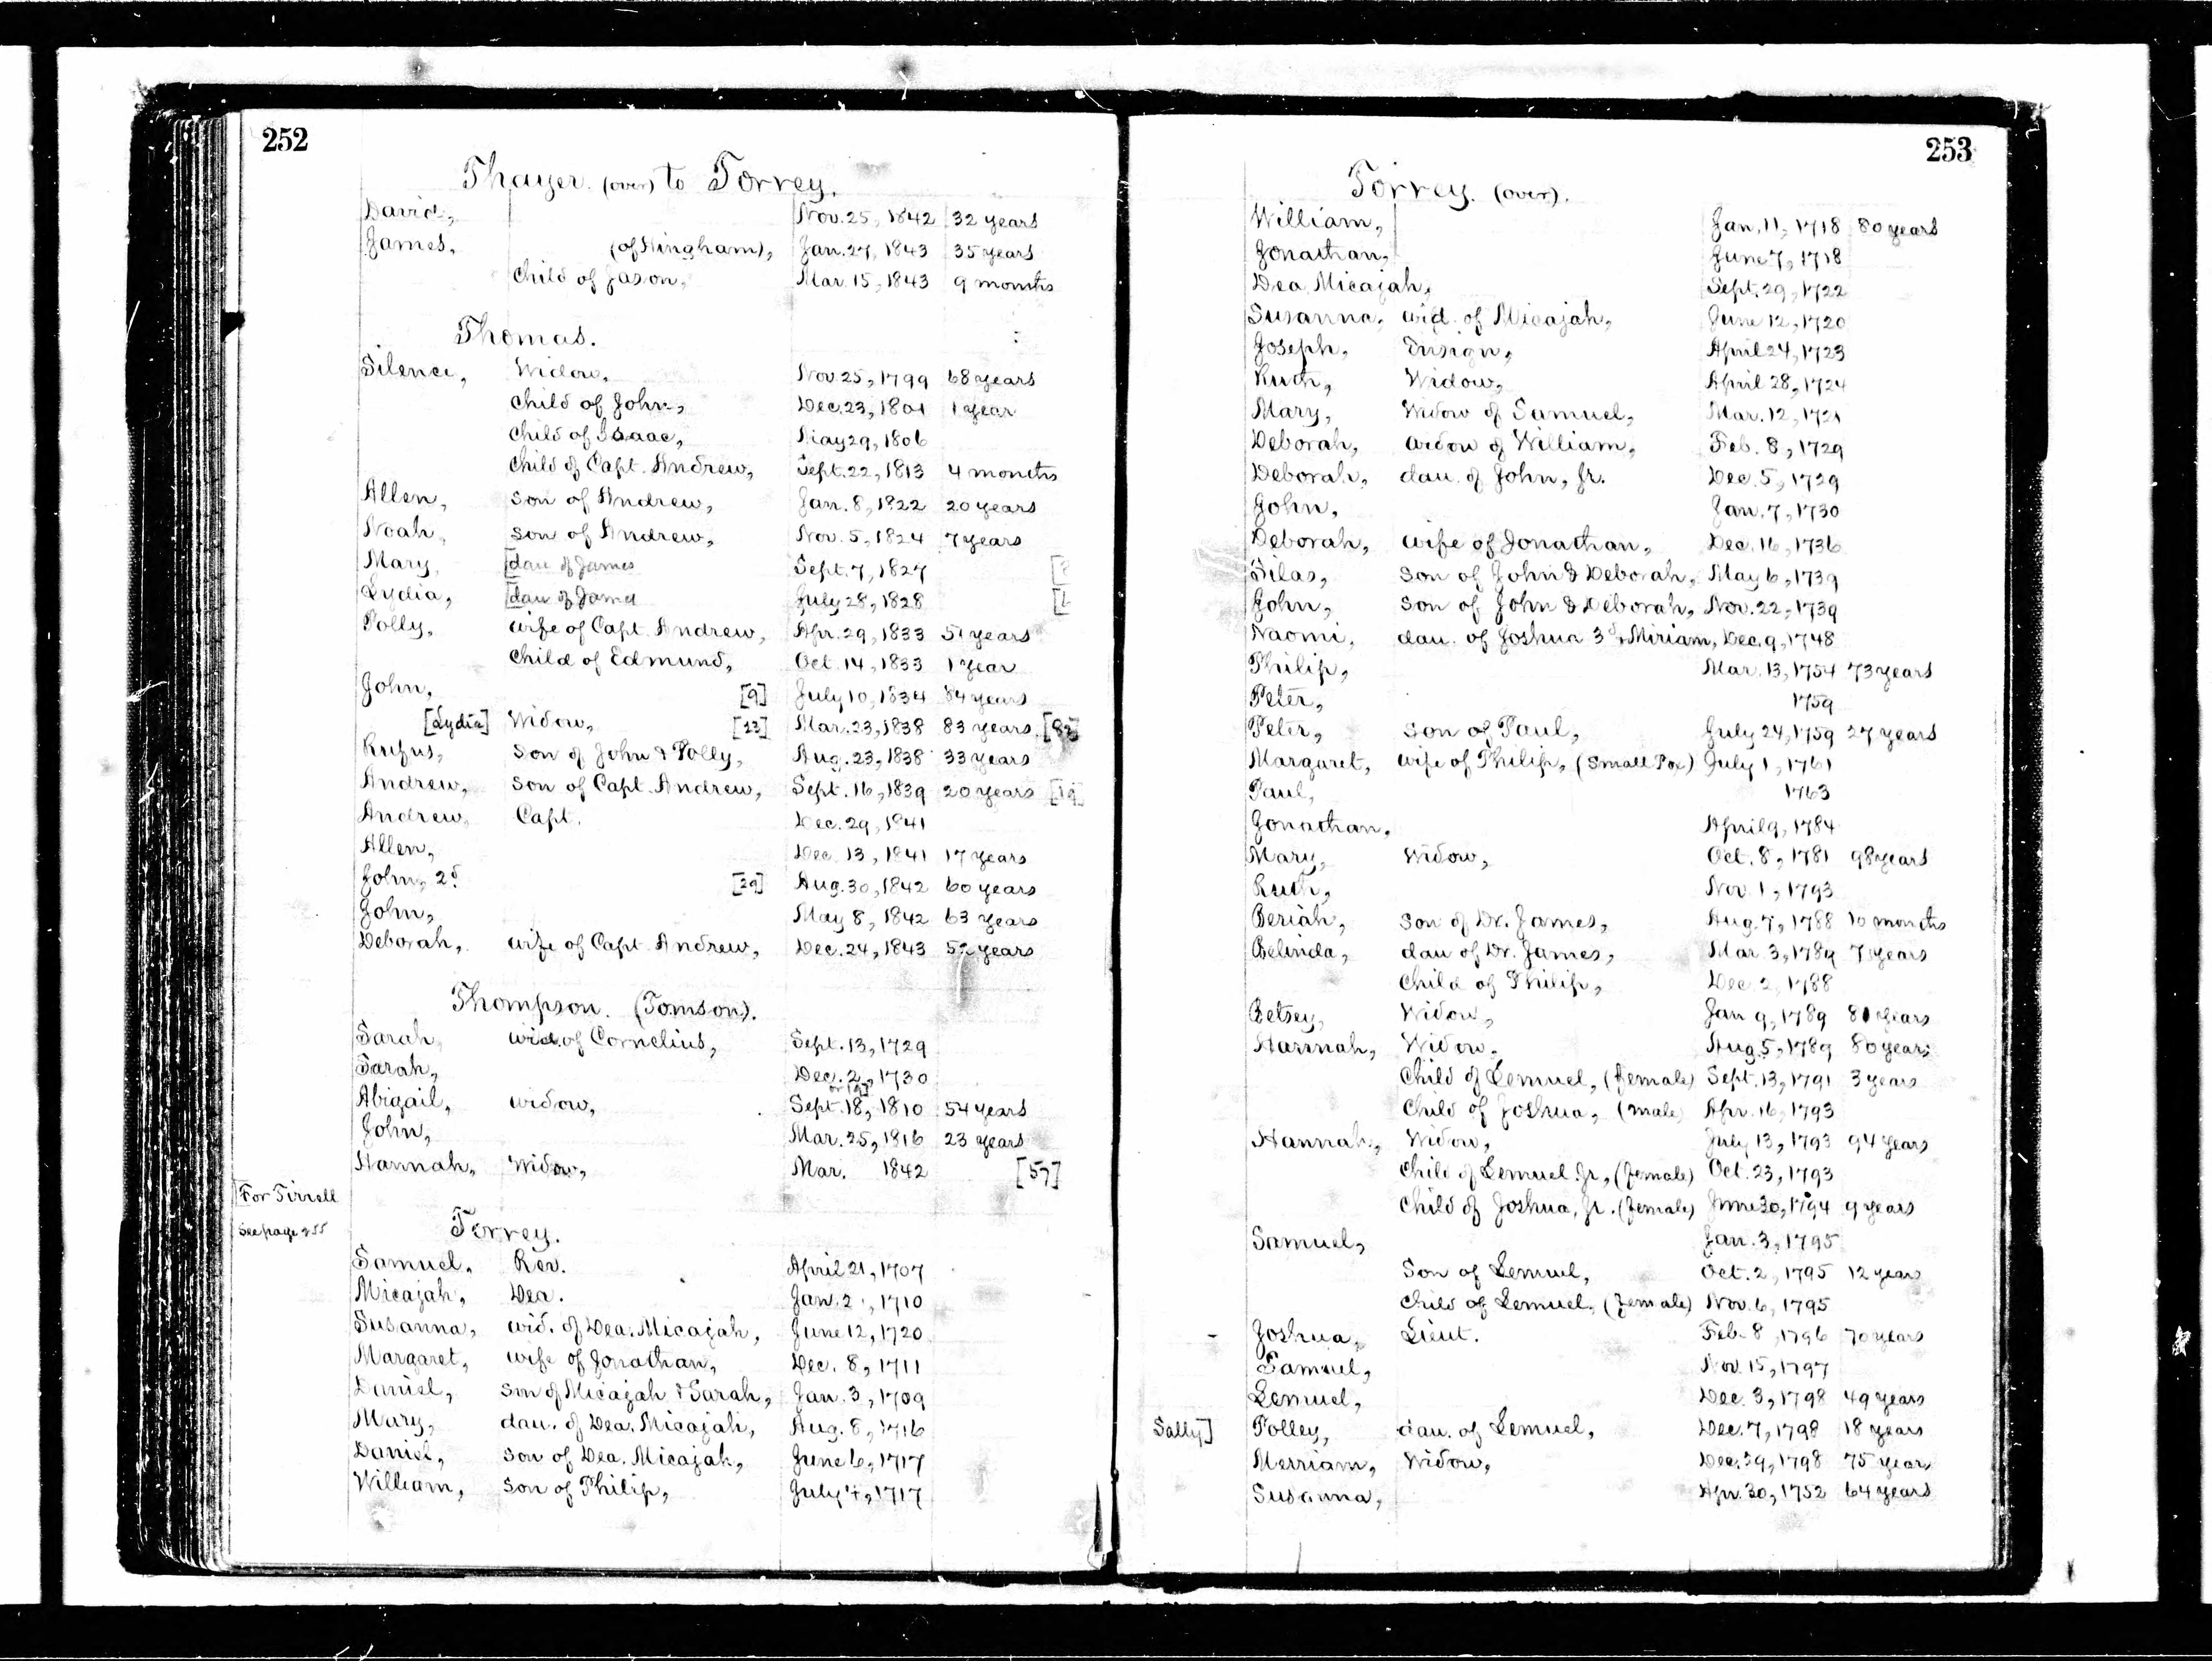 252
Thayer. (over) to Torrey.
David, Nov. 25, 1842 32 years
James, (of Hingham), Jan. 27, 1843 35 years
Child of Jason, Mar. 15, 1843 9 months
Thomas.
Silence, Widow, Nov. 25, 1799 68 years
Child of John, Dec. 23, 1801 1 year
Child of Isaac, May 29, 1806
Child of Capt. Andrew, Sept. 22, 1813 4 months
Allen, son of Andrew, Jan. 8, 1822 20 years
Noah, son of Andrew, Nov. 5, 1824 7 years
Mary, [dau of James Sept. 7, 1827
Lydia, [dau of James July 28, 1828
Polly, wife of Capt. Andrew, Apr. 29, 1833 51 years
Child of Edmund, Oct. 14, 1833 1 year
John, [9] July 10, 1834 84 years
[Lydia] Widow, [23] Mar. 23, 1838 83 years [82]
Rufus, Son of John & Polly, Aug. 23, 1838 33 years
Andrew, Son of Capt. Andrew, Sept. 16, 1839 20 years [19]
Andrew, Capt. Dec. 29, 1841
Allen, Dec. 13, 1841 17 years
John, 2d [29] Aug. 30, 1842 60 years
John, May 8, 1842 63 years
Deborah, wife of Capt. Andrew, Dec. 24, 1843 52 years
Thompson. (Tomson).
Sarah, wid. of Cornelius, Sept. 13, 1729
Sarah, Dec. 2, 1730
Abigail, widow, Sept. 18, 1810 54 years
John, Mar. 25, 1816 23 years
Hannah, Widow, Mar. 1842 [57]
For Tirrell
See page 255
Torrey.
Samuel, Rev. April 21, 1707
Micajah, Dea. Jan. 2, 1710
Susanna, wid. of Dea. Micajah, June 12, 1720
Margaret, wife of Jonathan, Dec. 8, 1711
Daniel, son of Micajah & Sarah, Jan. 3, 1709
Mary, dau. of Dea. Micajah, Aug. 8, 1716
Daniel, son of Dea. Micajah, June 6, 1717
William, Son of Philip, July 4, 1717
253
Torrey. (over).
William, Jan. 11, 1718 80 years
Jonathan, June 7, 1718
Dea. Micajah, Sept. 29, 1722
Susanna, wid. of Micajah, June 12, 1720
Joseph, Ensign, April 24, 1723
Ruth, Widow, April 28, 1724
Mary, Widow of Samuel, Mar. 12, 1721
Deborah, widow of William, Feb. 8, 1729
Deborah, dau. of John, Jr. Dec. 5, 1729
John, Jan. 7, 1730
Deborah, wife of Jonathan, Dec. 16, 1736
Silas, Son of John & Deborah, May 6, 1739
John, Son of John & Deborah, Nov. 22, 1739
Naomi, dau. of Joshua 3d & Miriam, Dec. 9, 1748
Philip, Mar. 13, 1754 73 years
Peter, 1759
Peter, Son of Paul, July 24, 1759 27 years
Margaret, wife of Philip, (Small Pox) July 1, 1761
Paul, 1763
Jonathan, April 9, 1784
Mary, Widow, Oct. 8, 1781 98 years
Ruth, Nov. 1, 1793
Beriah, Son of Dr. James, Aug. 7, 1788 10 months
Belinda, dau of Dr. James, Mar. 3, 1789 7 years
Child of Philip, Dec. 2, 1788
Betsey, Widow, Jan 9, 1789 81 years
Hannah, Widow, Aug. 5, 1789 80 years
Child of Lemuel, (female) Sept. 13, 1791 3 years
Child of Joshua, (male) Apr. 16, 1793
Hannah, Widow, July 13, 1793 94 years
Child of Lemuel Jr, (female) Oct. 23, 1793
Child of Joshua, Jr. (female) June 30, 1794 9 years
Samuel, Jan. 3, 1795
Son of Lemuel, Oct. 2, 1795 12 years
Child of Lemuel, (female) Nov. 6, 1795
Joshua, Lieut. Feb. 8, 1796 70 years
Samuel, Nov. 15, 1797
Lemuel, Dec. 3, 1798 49 years
Sally] Polley, dau. of Lemuel, Dec. 7, 1798 18 years
Merriam, Widow, Dec. 29, 1798 75 years
Susanna, Apr. 30, 1752 64 years